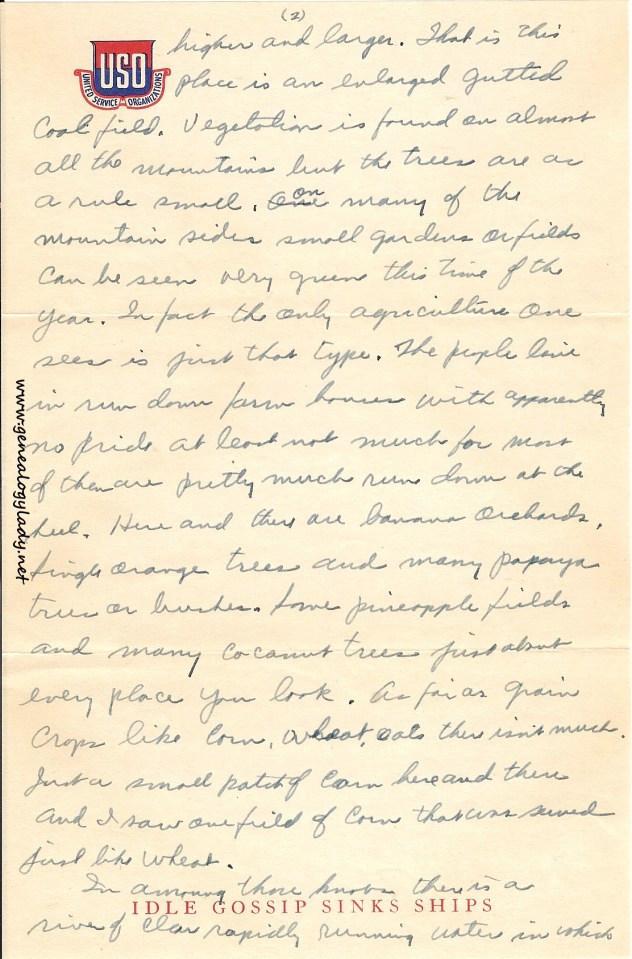 (2)
higher and larger. That is this
USO
UNITED SERVICE ORGANIZATIONS
place is an enlarged gutted
Coal field. Vegetation is found on almost
all the mountains but the trees are as
a rule small. On many of the
mountain sides small gardens or fields
can be seen very green this time of the
year. In fact the only agriculture one
sees is just that type. The people live
in run down farm houses with apparently
no pride at least not much for most
of them are pretty much run down at the
heel. Here and there are banana orchards,
single orange trees and many papaya
trees or bushes. Some pineapple fields
and many cocanut trees just about
every place you look. As far as grain
Crops like Corn, wheat, oats there isn't much.
Just a small patch of Corn here and there
and I saw one field of Corn that was sowed
just like wheat.
In among those knobs there is a
IDLE GOSSIP SINKS SHIPS
river of clear rapidly running water in which
www.genealogylady.net